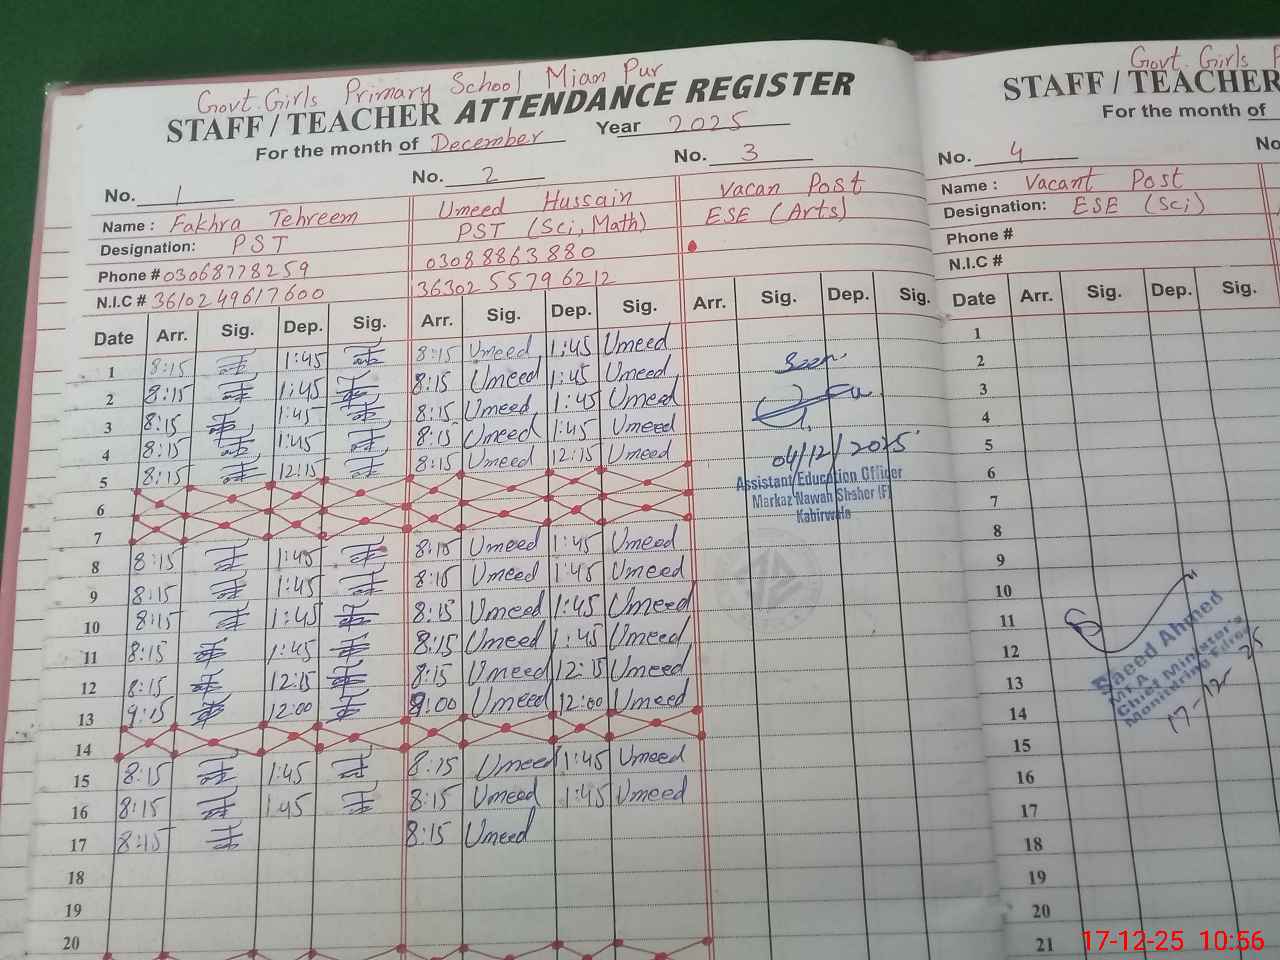 Govt. Girls Primary School Mian Pur
STAFF / TEACHER ATTENDANCE REGISTER
For the month of December Year 2025
No. 1 No. 2 No. 3
Name : Fakhra Tehreem Umeed Hussain Vacan Post
Designation: PST PST (Sci, Math) ESE (Arts)
Phone # 03068778259 03088863880
N.I.C # 3610249617600 36302 55796212
Date Arr. Sig. Dep. Sig. Arr. Sig. Dep. Sig. Arr. Sig. Dep. Sig.
1 8:15 1:45 8:15 Umeed 1:45 Umeed
2 8:15 1:45 8:15 Umeed 1:45 Umeed
3 8:15 1:45 8:15 Umeed 1:45 Umeed
4 8:15 1:45 8:15 Umeed 1:45 Umeed
5 8:15 12:15 8:15 Umeed 12:15 Umeed
6
7
8 8:15 1:45 8:15 Umeed 1:45 Umeed
9 8:15 1:45 8:15 Umeed 1:45 Umeed
10 8:15 1:45 8:15 Umeed 1:45 Umeed
11 8:15 1:45 8:15 Umeed 1:45 Umeed
12 8:15 12:15 8:15 Umeed 12:15 Umeed
13 9:15 12:00 9:00 Umeed 12:00 Umeed
14
15 8:15 1:45 8:15 Umeed 1:45 Umeed
16 8:15 1:45 8:15 Umeed 1:45 Umeed
17 8:15 8:15 Umeed
18
19
20
Seen
04/12/2025
Assistant Education Officer
Markaz Nawan Shaher (F)
Kabirwala
Govt. Girls P
STAFF / TEACHER
For the month of
No. 4 No
Name : Vacant Post
Designation: ESE (Sci)
Phone #
N.I.C #
Date Arr. Sig. Dep. Sig.
1
2
3
4
5
6
7
8
9
10
11
12
13
14
15
16
17
18
19
20
21
Saeed Ahmed
MEA
Chief Minister's
Monitoring Force
17-12-25
17-12-25 10:56